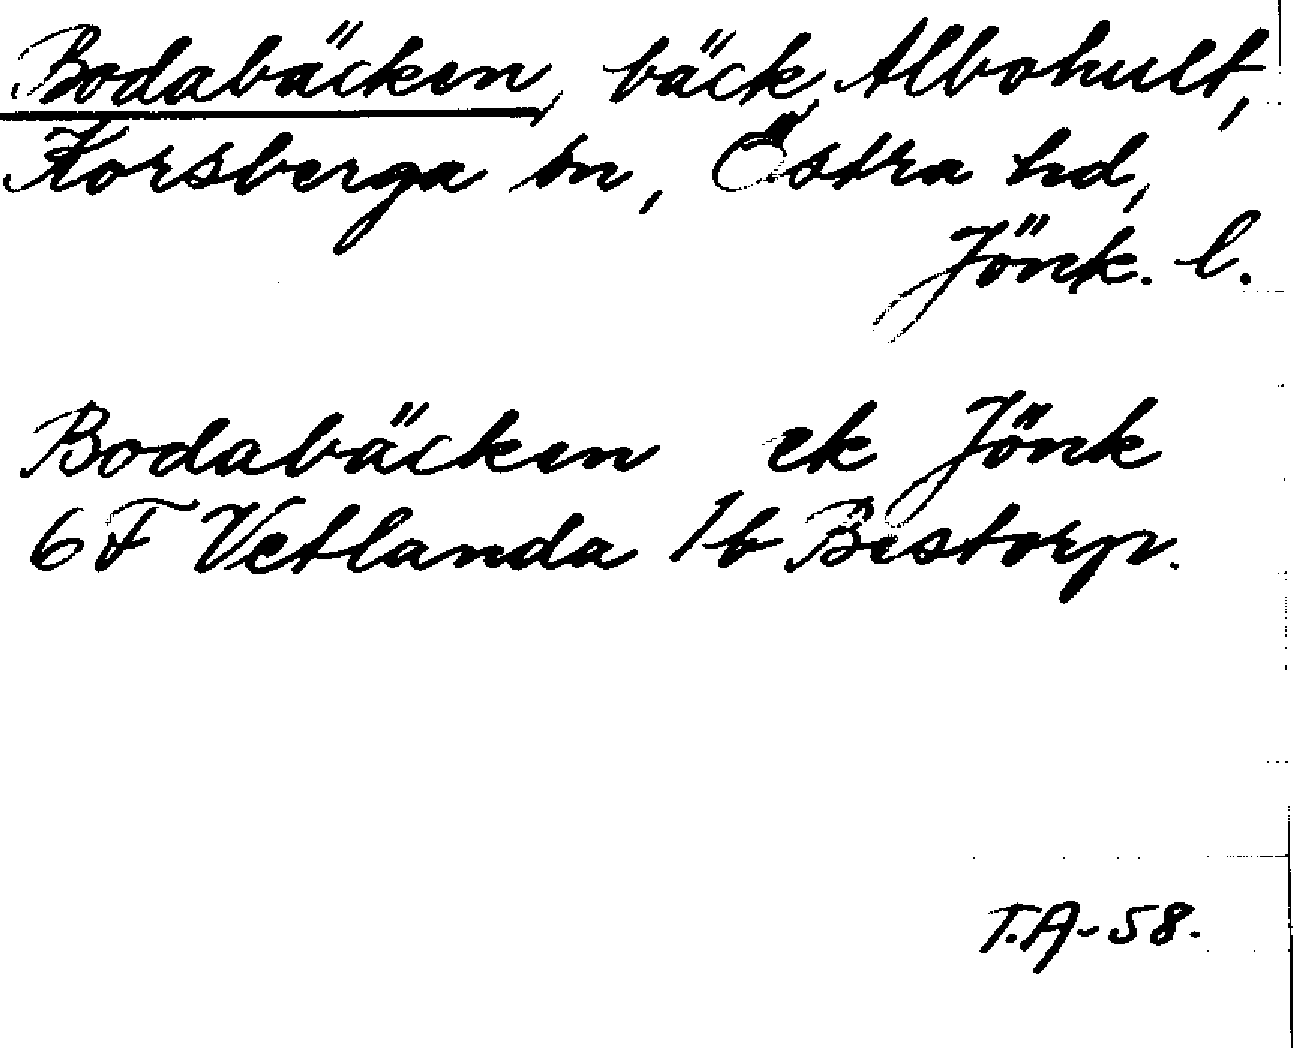 Bodabäcken, bäck, Albohult,
Korsberga sn, Östra hd,
Jönk. l.
Bodabäcken ek Jönk
6F Vetlanda 1b Bestorp.
T.A-58.